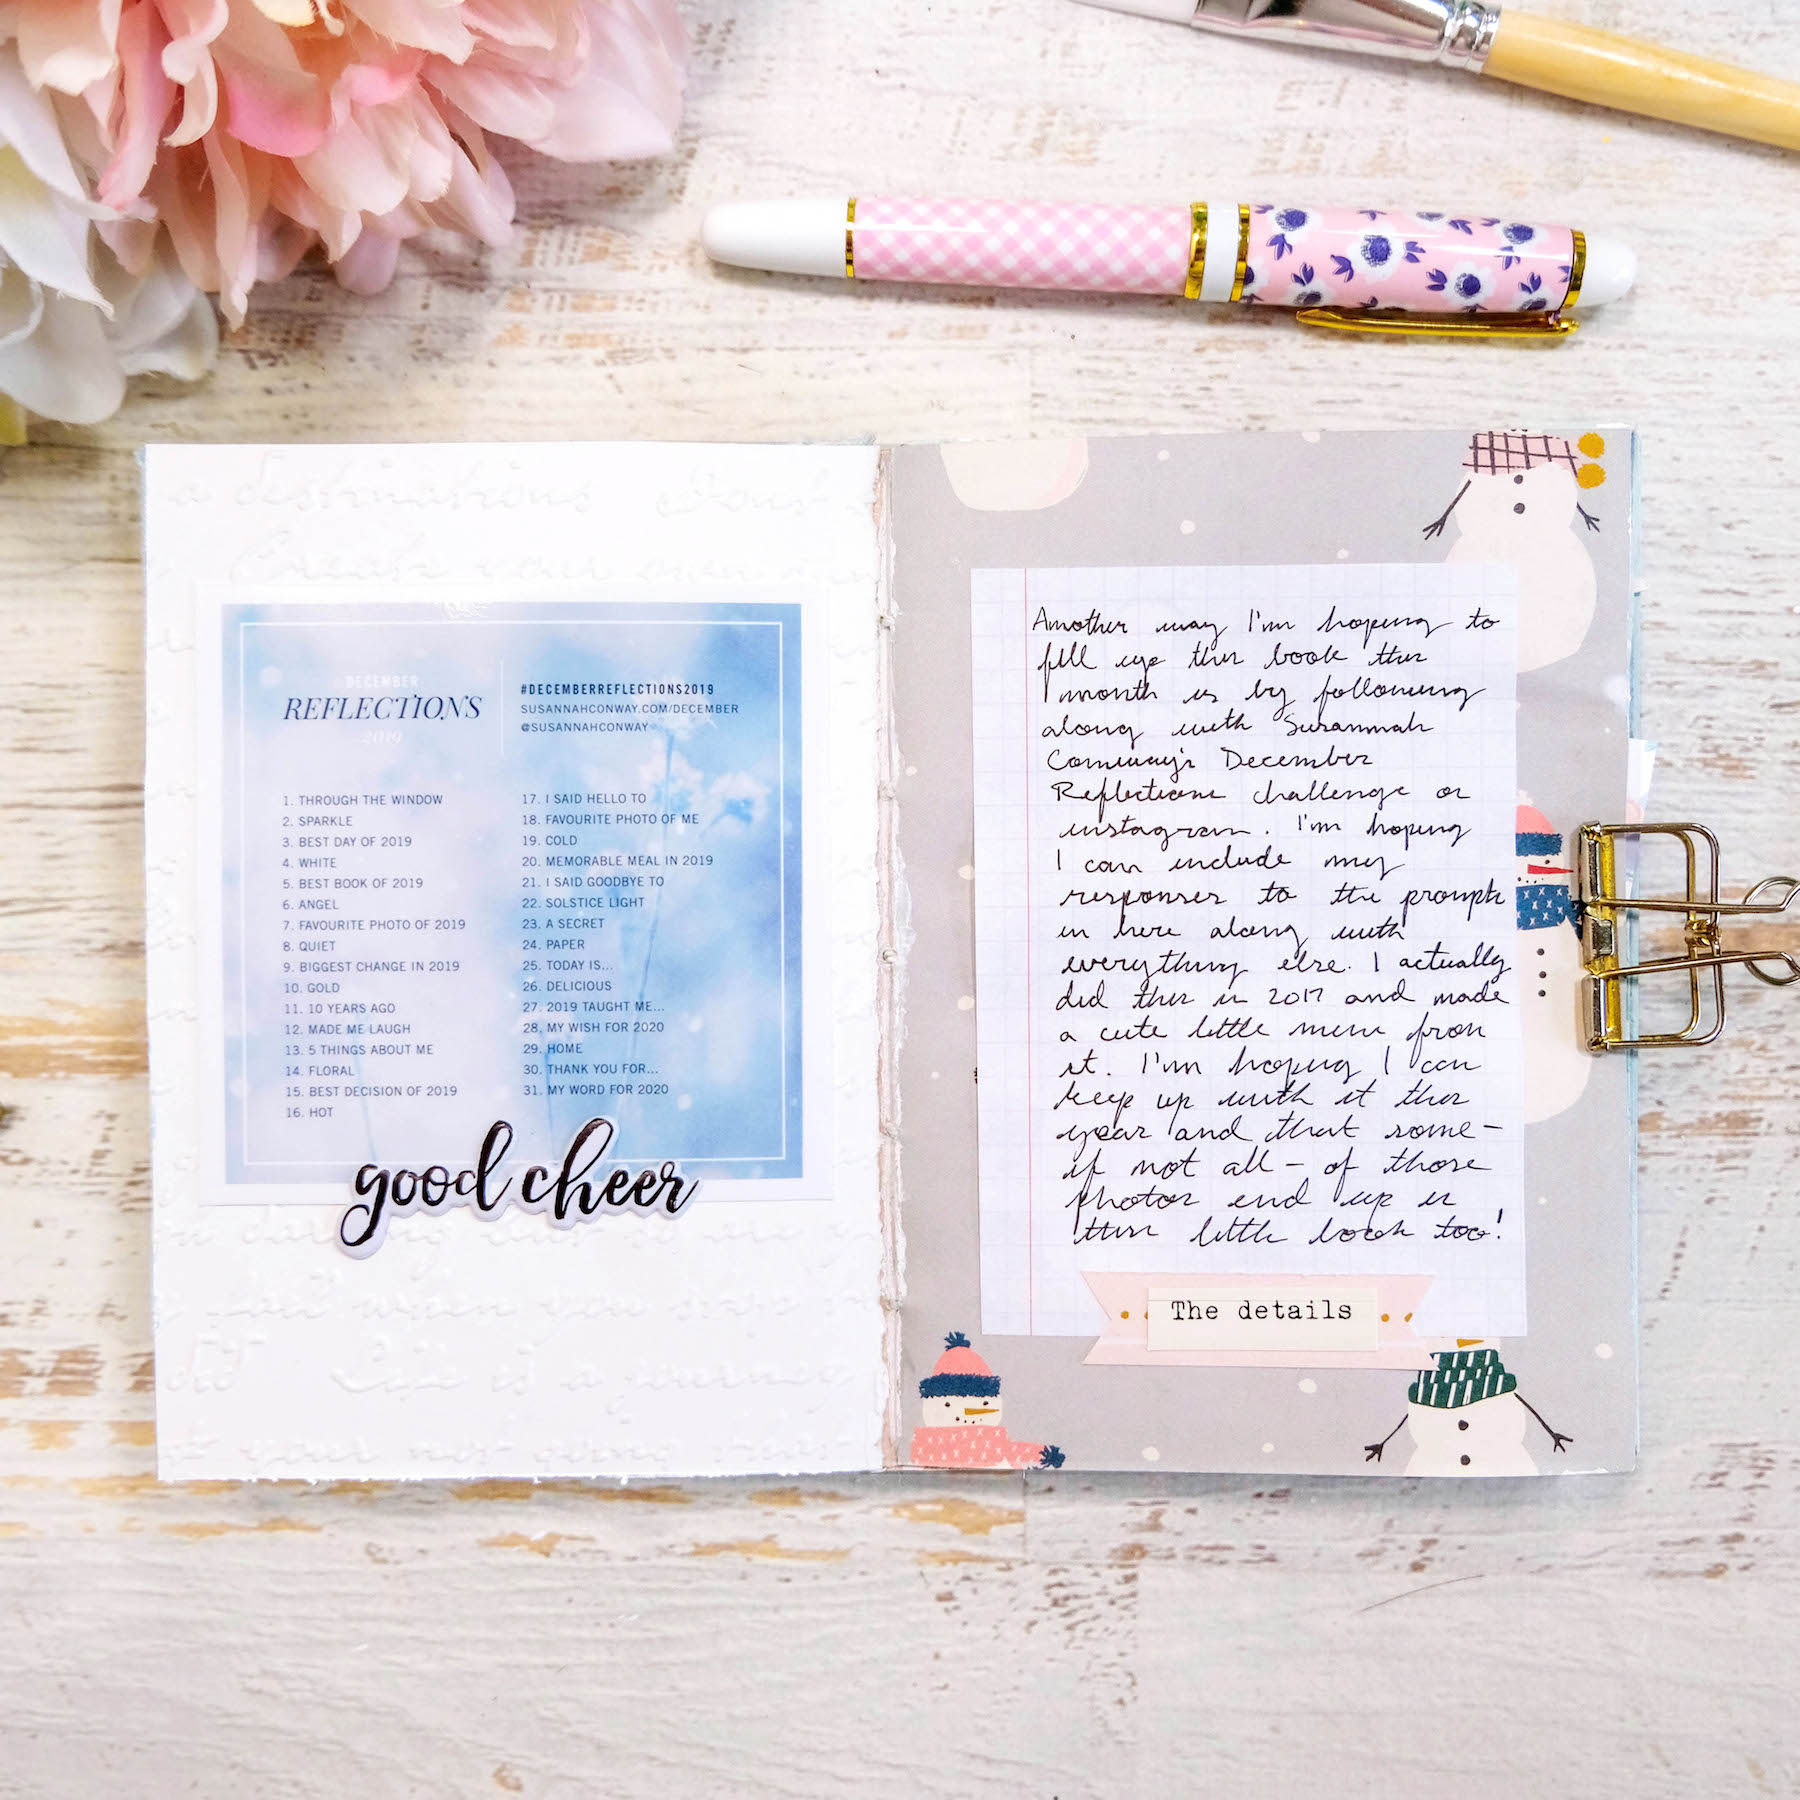 DECEMBER
REFLECTIONS
2019
#DECEMBERREFLECTIONS2019
SUSANNAHCONWAY.COM/DECEMBER
@SUSANNAHCONWAY
1. THROUGH THE WINDOW
2. SPARKLE
3. BEST DAY OF 2019
4. WHITE
5. BEST BOOK OF 2019
6. ANGEL
7. FAVOURITE PHOTO OF 2019
8. QUIET
9. BIGGEST CHANGE IN 2019
10. GOLD
11. 10 YEARS AGO
12. MADE ME LAUGH
13. 5 THINGS ABOUT ME
14. FLORAL
15. BEST DECISION OF 2019
16. HOT
17. I SAID HELLO TO
18. FAVOURITE PHOTO OF ME
19. COLD
20. MEMORABLE MEAL IN 2019
21. I SAID GOODBYE TO
22. SOLSTICE LIGHT
23. A SECRET
24. PAPER
25. TODAY IS...
26. DELICIOUS
27. 2019 TAUGHT ME...
28. MY WISH FOR 2020
29. HOME
30. THANK YOU FOR...
31. MY WORD FOR 2020
good cheer
Another way I'm hoping to
fill up this book this
month is by following
along with Susannah
Conway's December
Reflections challenge on
instagram. I'm hoping
I can include my
responses to the prompts
in here along with
everything else. I actually
did this in 2017 and made
a cute little mini from
it. I'm hoping I can
keep up with it this
year and that some-
if not all - of those
photos end up in
this little book too!
The details